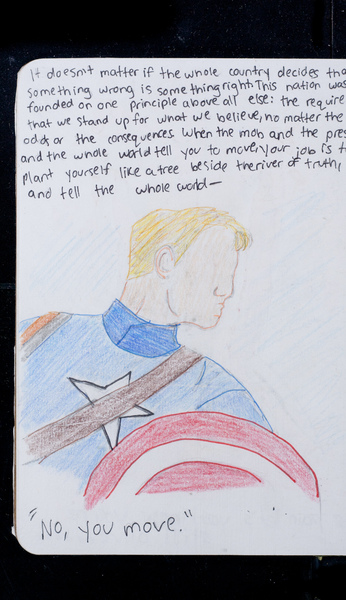 It doesn't matter if the whole country decides tha
something wrong is something right. This nation was
founded on one principle above all else: the require
that we stand up for what we believe, no matter the
odds or the consequences. When the mob and the pres
and the whole world tell you to move, your job is t
plant yourself like a tree beside the river of truth,
and tell the whole world—
"No, you move."